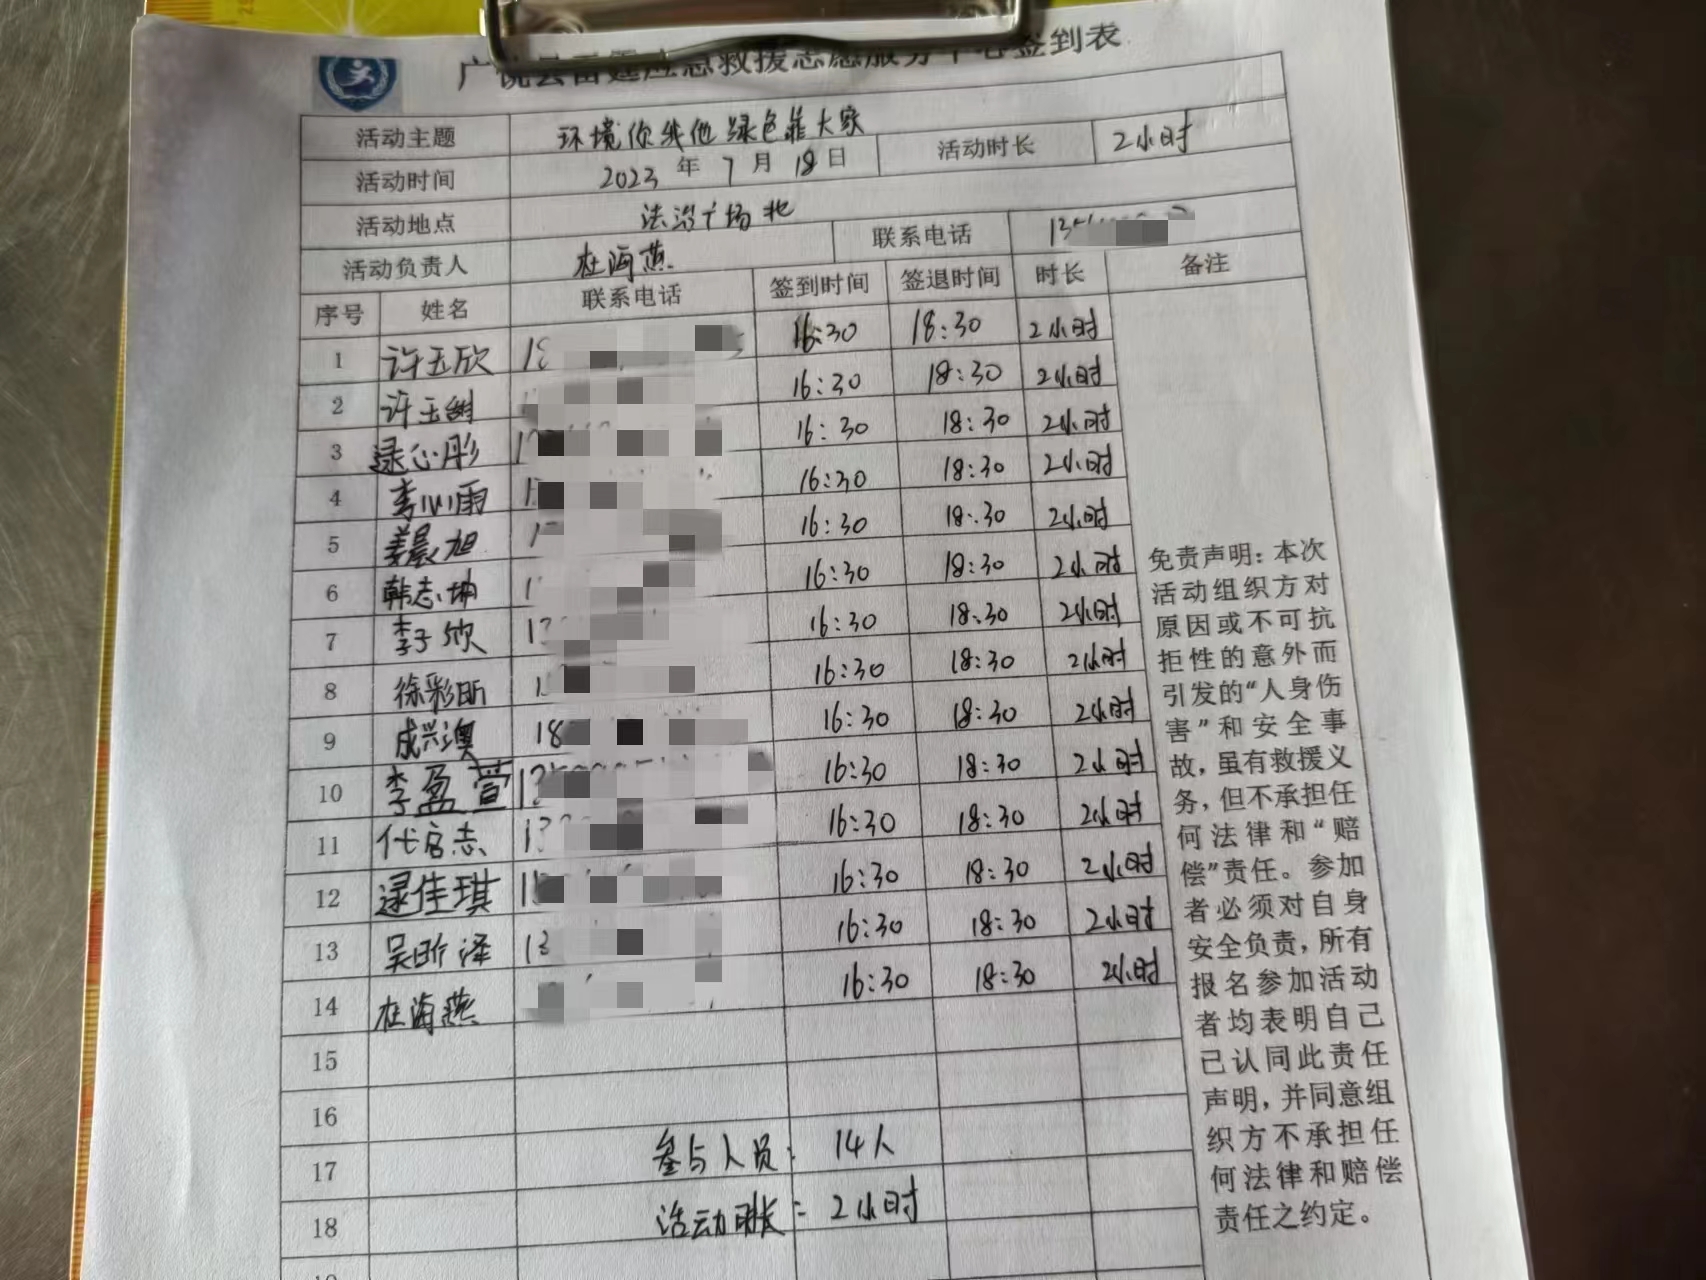 广饶县雷霆应急救援志愿服务中心签到表
活动主题 环境你我他 绿色靠大家
活动时间 2023 年 7 月 18 日 活动时长 2小时
活动地点 法治广场北
活动负责人 杜海燕 联系电话
序号 姓名 联系电话 签到时间 签退时间 时长 备注
1 许玉欣 16:30 18:30 2小时
2 许玉 16:30 18:30 2小时
3 逯心彤 16:30 18:30 2小时
4 李心雨 16:30 18:30 2小时
5 姜晨旭 16:30 18:30 2小时
6 韩志坤 16:30 18:30 2小时
7 李子欣 16:30 18:30 2小时
8 徐彩昕 16:30 18:30 2小时
9 成兴澳 18 16:30 18:30 2小时
10 李盈萱 16:30 18:30 2小时
11 代启志 13 16:30 18:30 2小时
12 逯佳琪 16:30 18:30 2小时
13 吴昕泽 13 16:30 18:30 2小时
14 杜海燕 16:30 18:30 2小时
15
16
17 参与人员: 14人
18 活动时长: 2小时
免责声明：本次
活动组织方对
原因或不可抗
拒性的意外而
引发的“人身伤
害”和安全事
故，虽有救援义
务，但不承担任
何法律和“赔
偿”责任。参加
者必须对自身
安全负责，所有
报名参加活动
者均表明自己
已认同此责任
声明，并同意组
织方不承担任
何法律和赔偿
责任之约定。